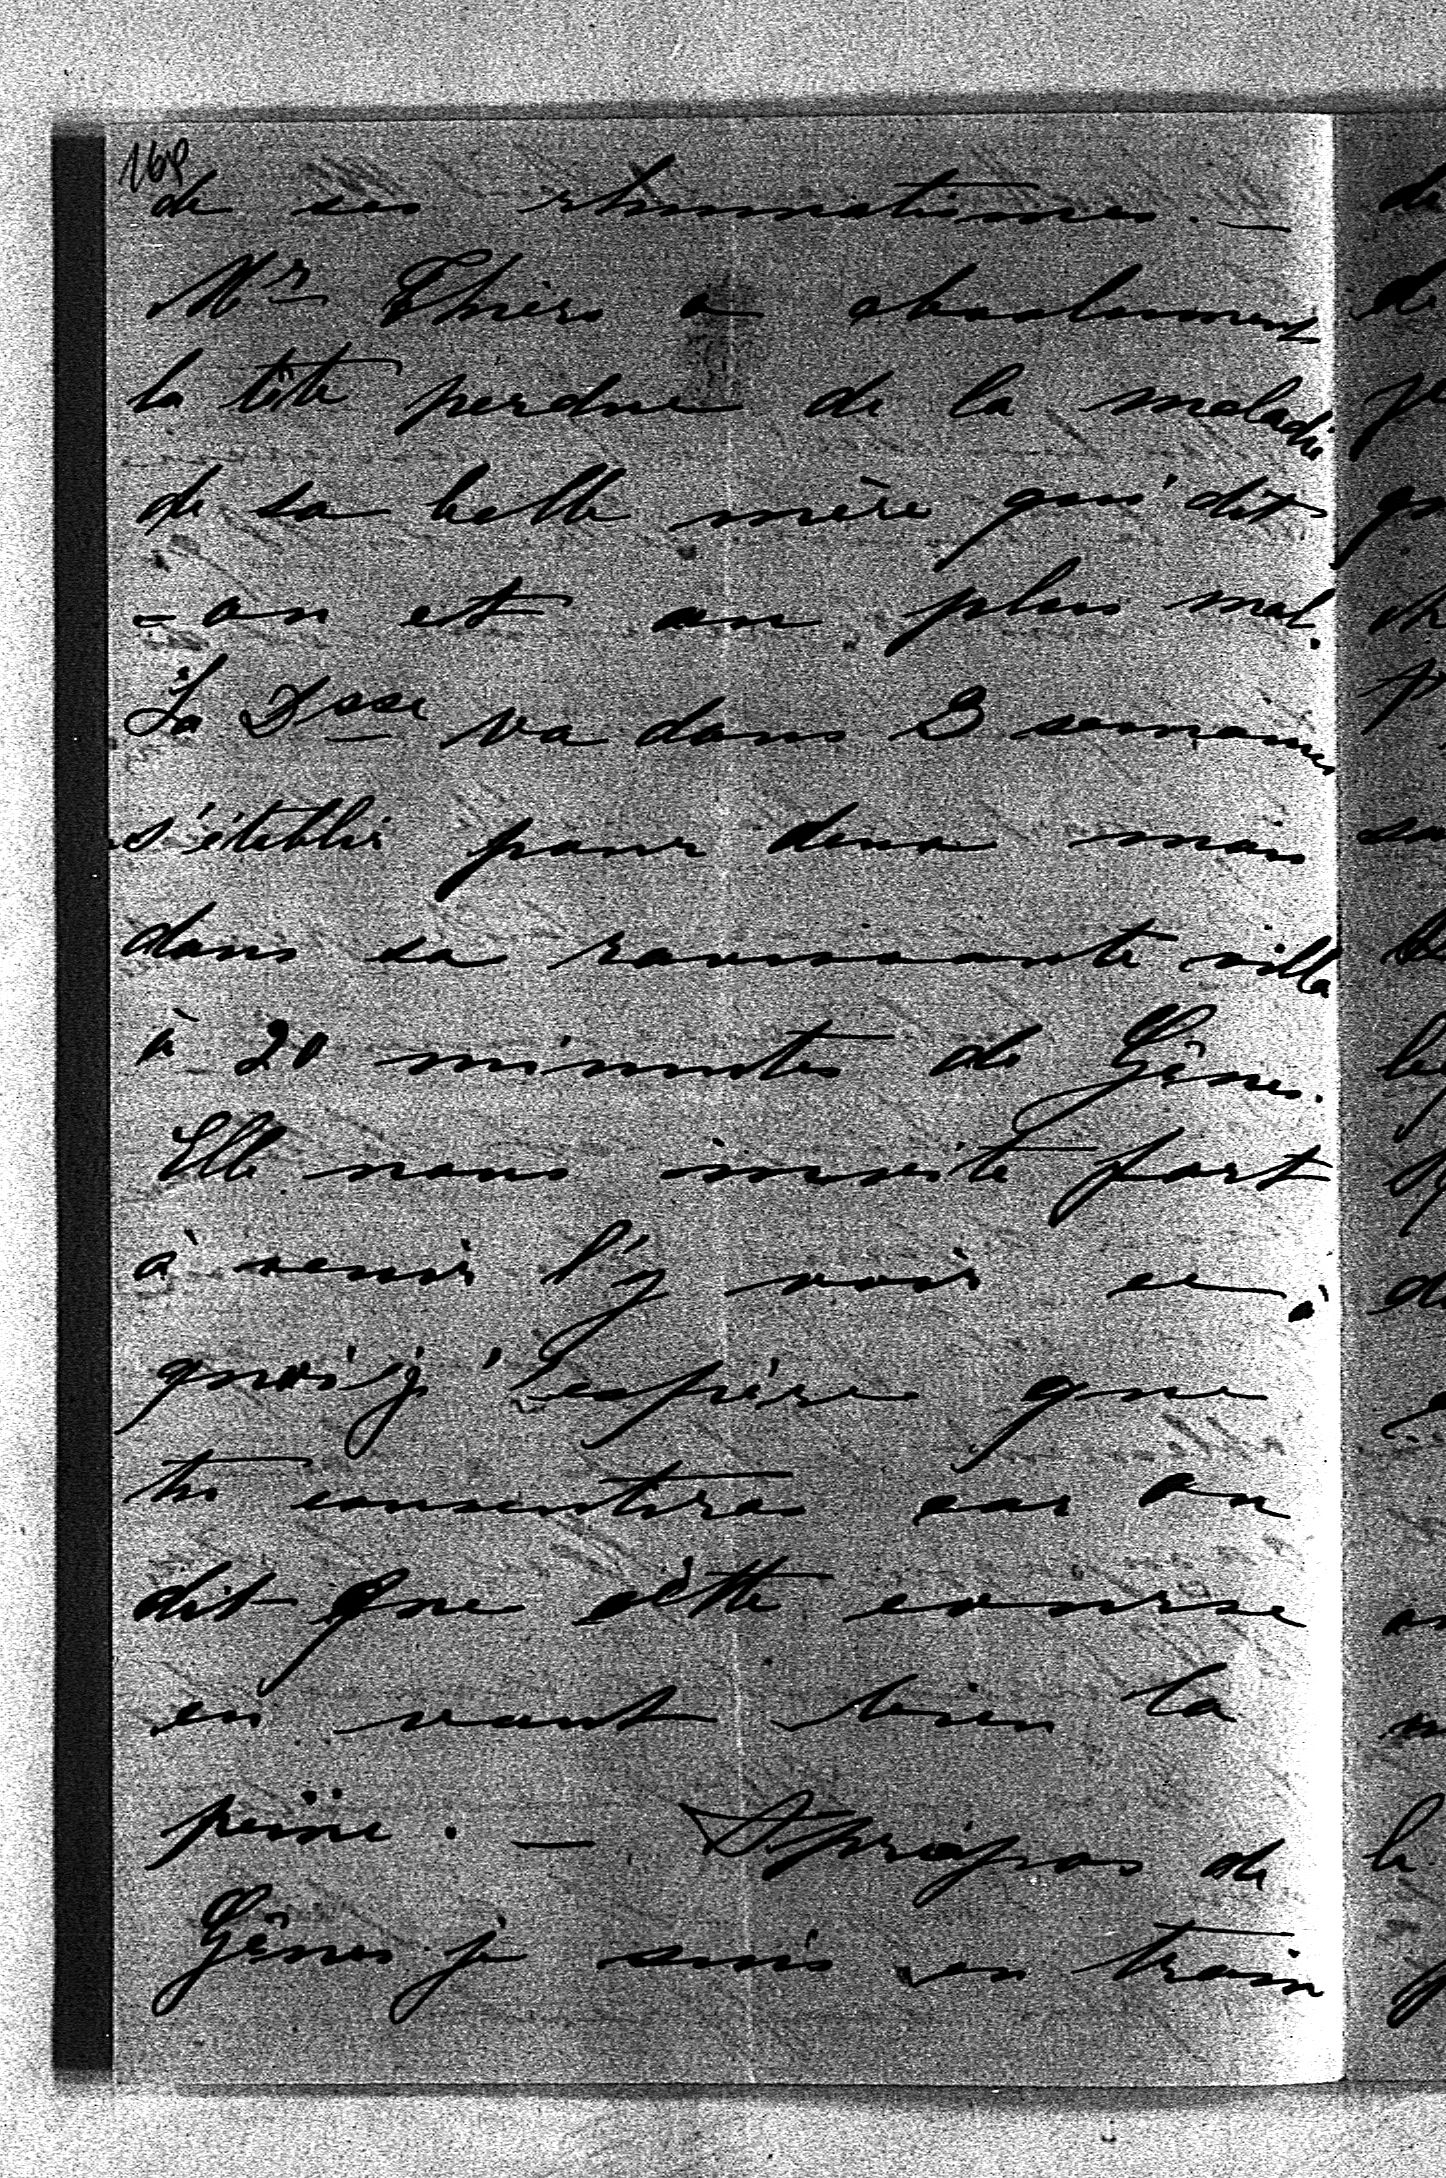 169
de ses rhumatismes. —
Mr Thiers a absolument
la tête perdue de la maladie
de sa belle mère qui dit
-on est au plus mal.
La Dsse va dans 3 semaines
s'établir pour deux mois
dans sa ravissante villa
à 20 minutes de Gênes.
Elle nous invite fort
à venir l'y voir ce à
quoi j'espère que
tu consentiras car on
dit que cette course
en vaut bien la
peine. — Apropos de
Gênes je suis en train